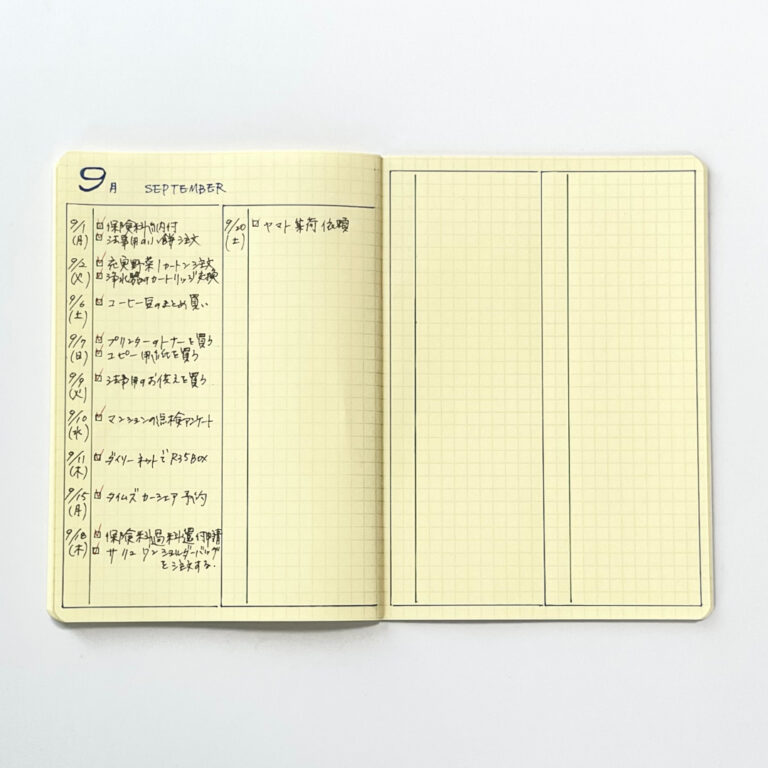 9月 SEPTEMBER
9/1 保険料納付
(月) 法事用の小餅注文
9/2 充実野菜1カートン注文
(火) 浄水器のカートリッジ交換
9/6 コーヒー豆のまとめ買い
(土)
9/7 プリンターのトナーを買う
(日) コピー用紙を買う
9/9 法事用のお供えを買う
(火)
9/10 マンションの点検アンケート
(水)
9/11 ダイリーネットで R35BOX
(木)
9/15 タイムズカーシェア予約
(月)
9/18 保険料過料還付申請
(木) サリュ ワンショルダーバッグ
を注文する.
9/20 ヤマト集荷依頼
(土)